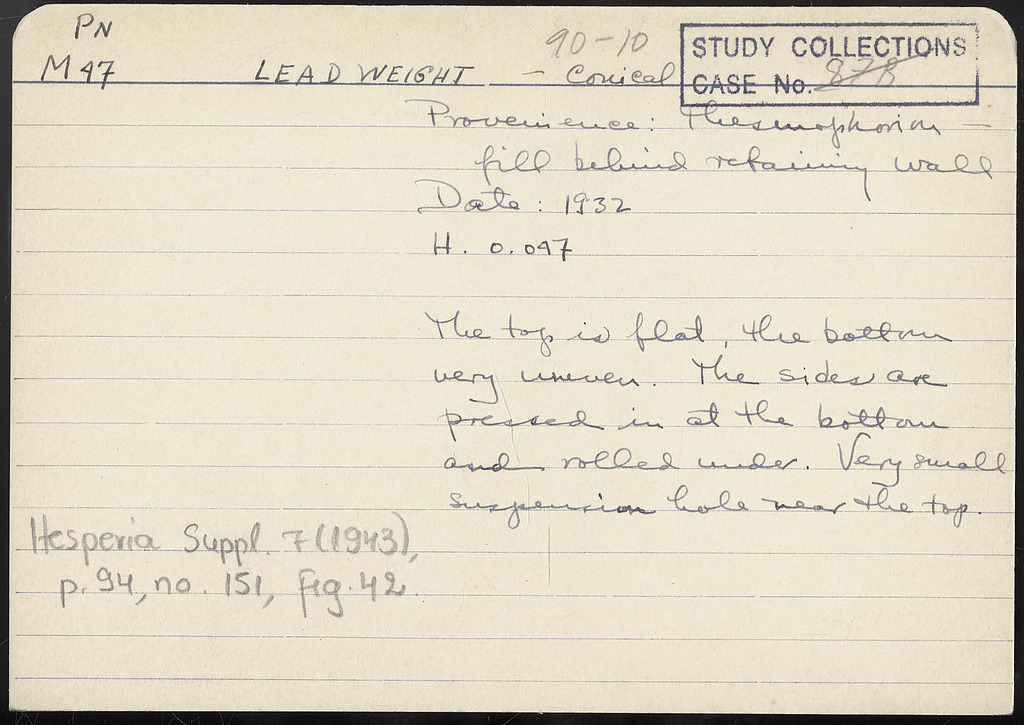 PN
M 47
LEAD WEIGHT - Conical
90-10
STUDY COLLECTIONS
CASE No. 878
Provenience: Thesmophorion -
fill behind retaining wall
Date: 1932
H. 0.047
The top is flat, the bottom
very uneven. The sides are
pressed in at the bottom
and rolled under. Very small
suspension hole near the top.
Hesperia Suppl. 7 (1943),
p. 94, no. 151, fig. 42.